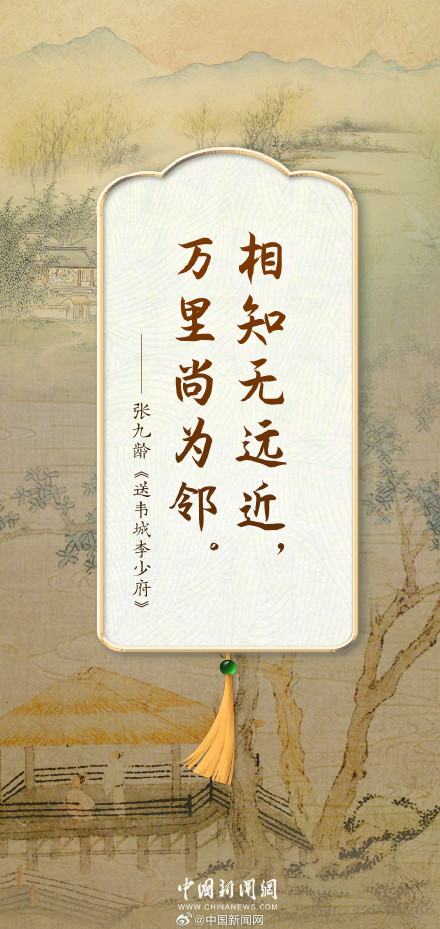 相知无远近，
万里尚为邻。
——张九龄《送韦城李少府》
中国新闻网
WWW.CHINANEWS.COM
@中国新闻网